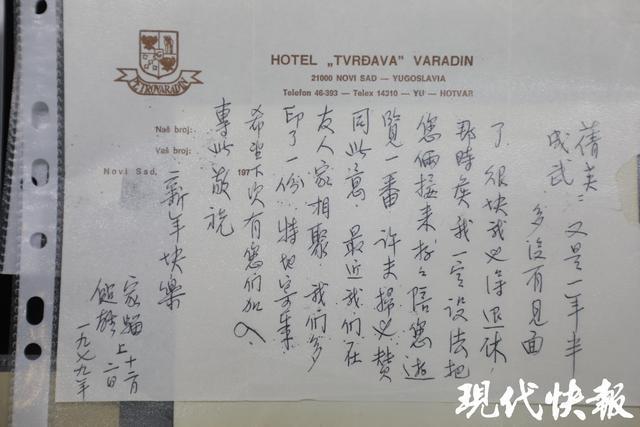 PETROVARADIN
HOTEL „TVRĐAVA” VARADIN
21000 NOVI SAD — YUGOSLAVIA
Telefon 46-393 — Telex 14310 — YU — HOTVAR
Naš broj:
Vaš broj:
Novi Sad, 197
蒨英：又是一年半
成武 多沒有見面
了 很快我必得退休，
那時侯我一定設法把
您倆接来 好々陪您遊
覽一番 許夫婦必贊
同此意 最近我們在
友人家相聚 我們多
印了一份 特地寄来
希望下次有您們加入
專此敬祝
新年快樂
家騮上 十二月
二日
一九七九年
现代快报